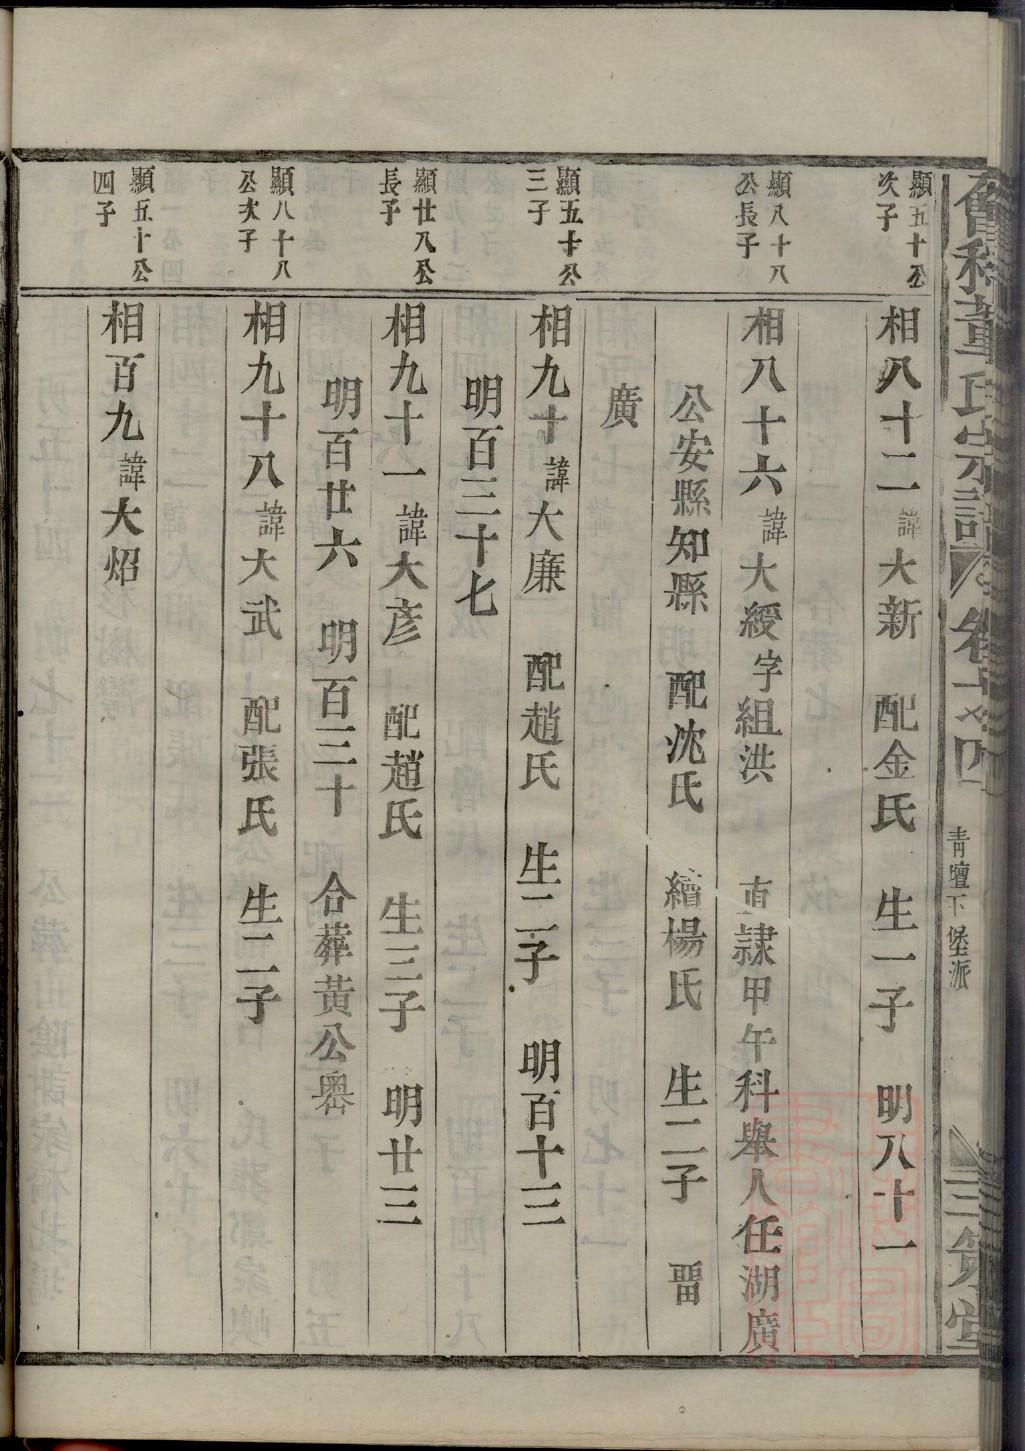 會稽董氏宗譜 卷十之四 青壇下堡派 三策堂
顯五十公
次子
相八十二諱大新 配金氏 生一子 明八十一
顯八十八
公長子
相八十六諱大綬字組洪 直隸甲午科舉人任湖廣
公安縣知縣 配沈氏 續楊氏 生二子 畱
廣
顯五十公
三子
相九十諱大廉 配趙氏 生二子 明百十三
明百三十七
顯廿八公
長子
相九十一諱大彥 配趙氏 生三子 明廿三
明百廿六 明百三十 合葬黃公嶴
顯八十八
公次子
相九十八諱大武 配張氏 生二子
顯五十公
四子
相百九諱大炤